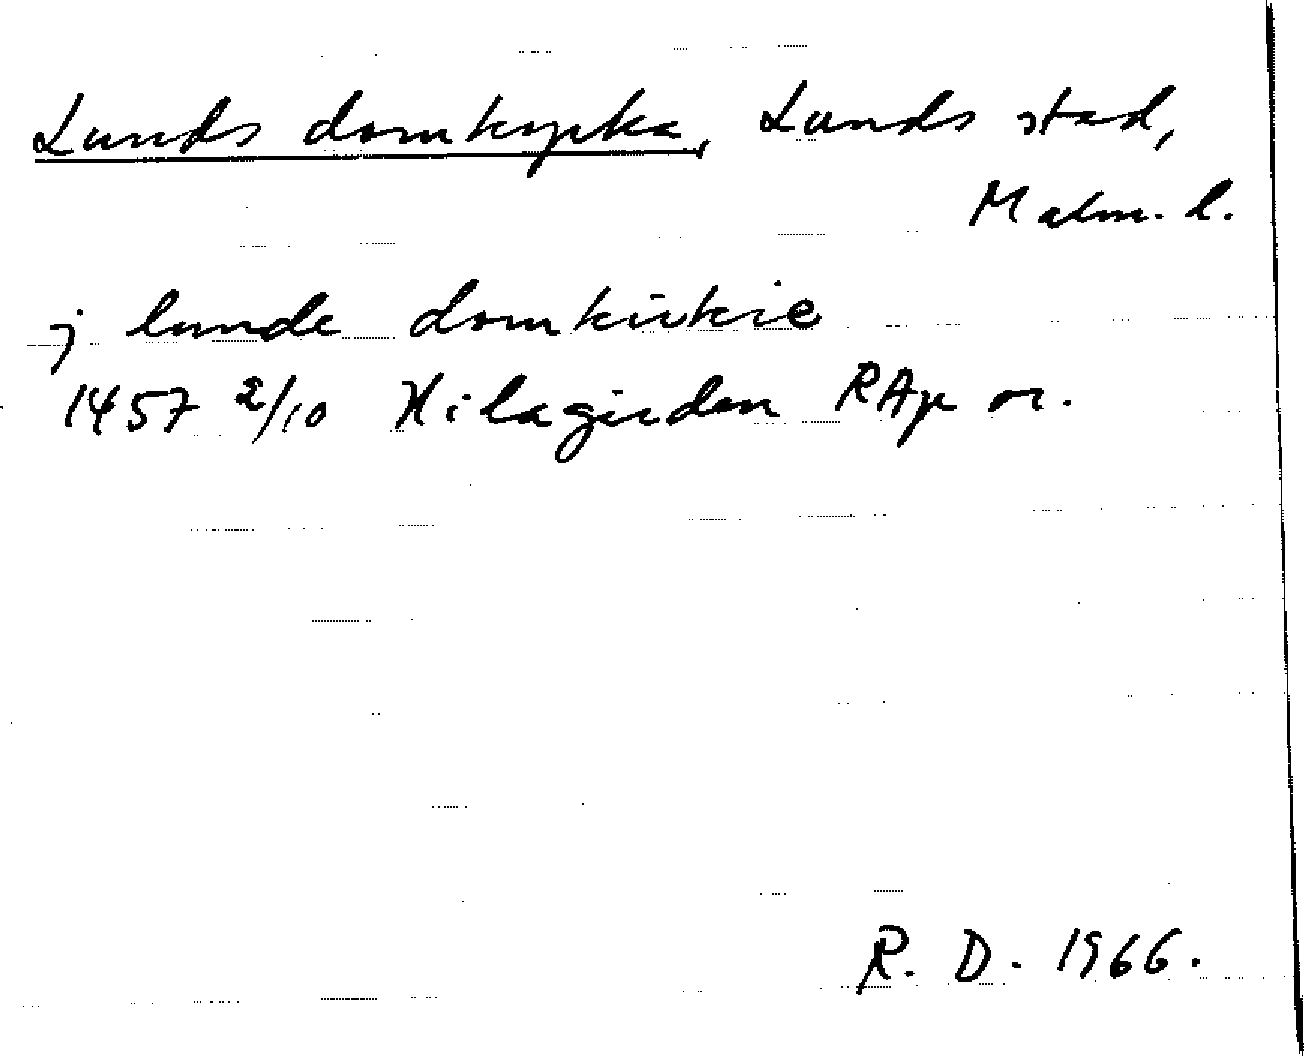 Lunds domkyrka, Lunds stad,
Malm. l.
j lunde domkirkie
1457 2/10 Hilagerden RAp or.
R. D. 1966.